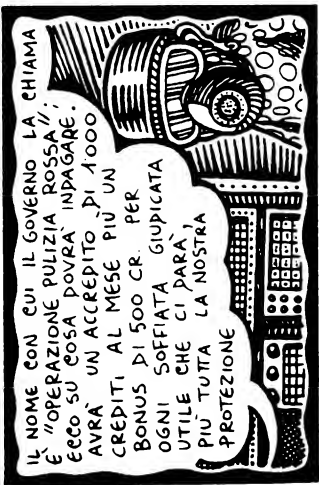 IL NOME CON CUI IL GOVERNO LA CHIAMA
È "OPERAZIONE PULIZIA ROSSA";
ECCO SU COSA DOVRA' INDAGARE.
AVRA' UN ACCREDITO DI 1'000
CREDITI AL MESE PIU' UN
BONUS DI 500 CR. PER
OGNI SOFFIATA GIUDICATA
UTILE CHE CI DARA',
PIU' TUTTA LA NOSTRA
PROTEZIONE